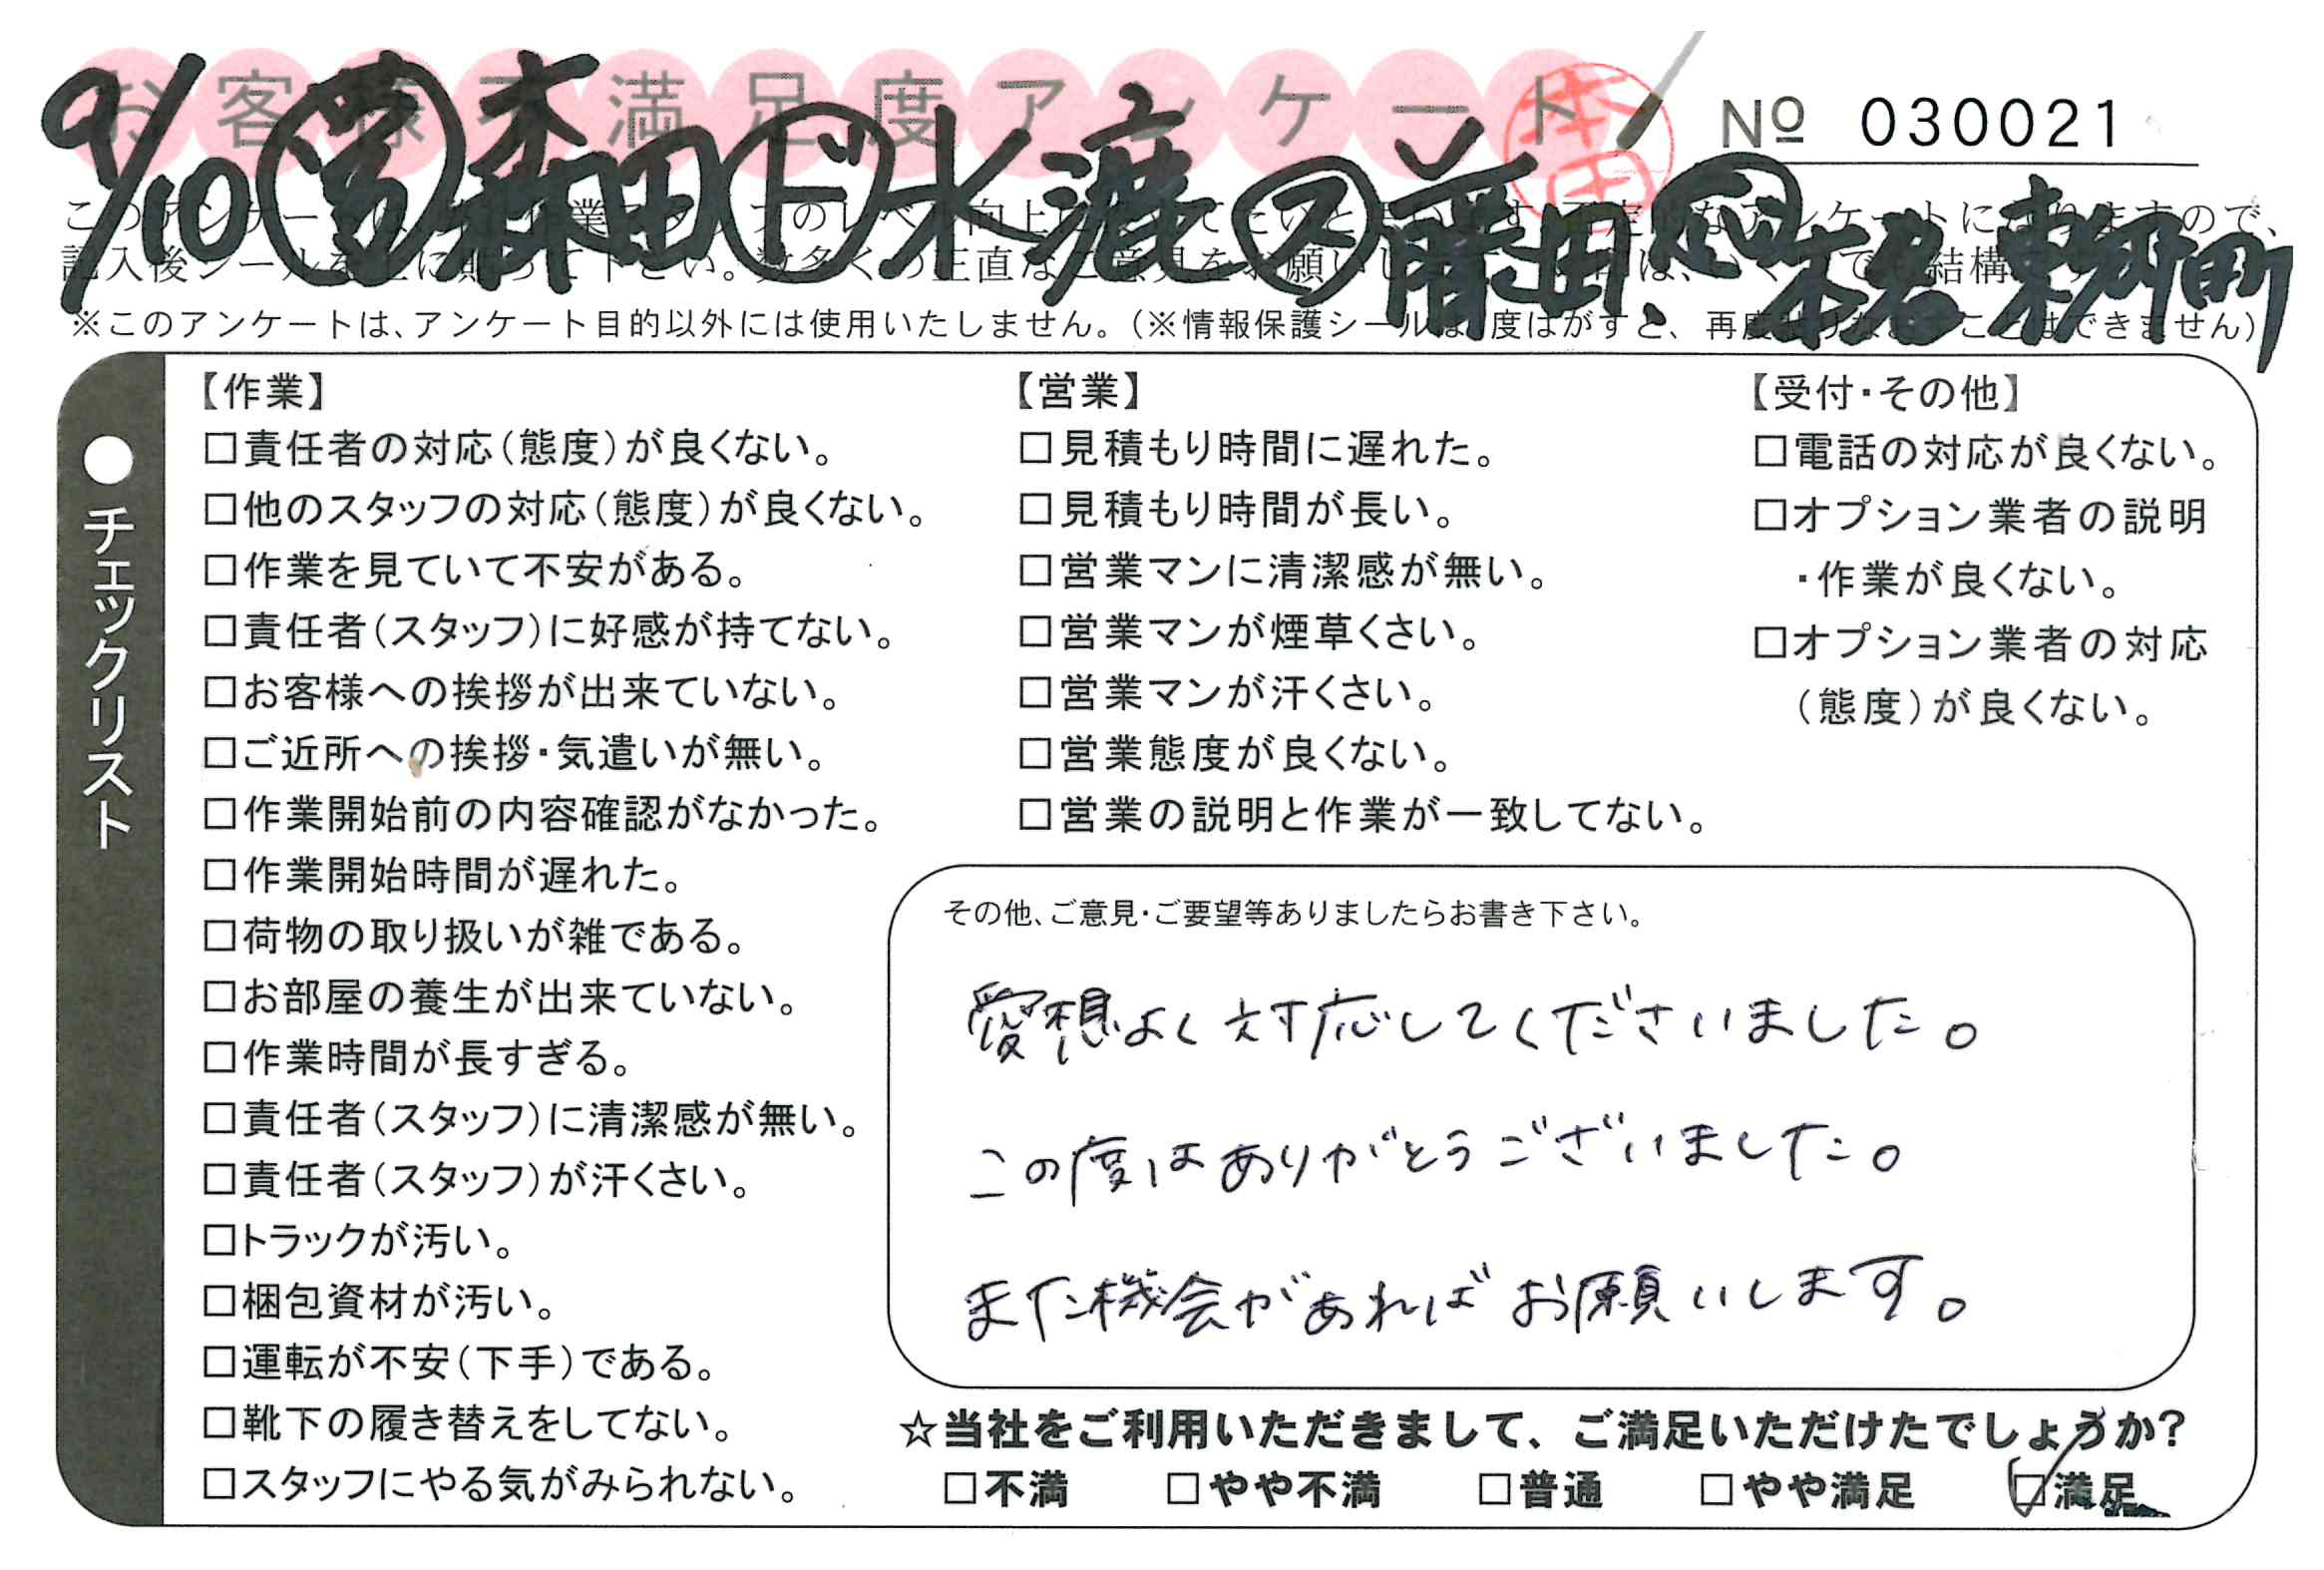 お客様不満足度アンケート
No 030021
9/10 営 森田 ド 水漉 ス 藤田、 本岩 東町
※このアンケートは、アンケート目的以外には使用いたしません。(※情報保護シールは1度はがすと、再度貼りなおすことはできません)
●チェックリスト
【作業】
□責任者の対応(態度)が良くない。
□他のスタッフの対応(態度)が良くない。
□作業を見ていて不安がある。
□責任者(スタッフ)に好感が持てない。
□お客様への挨拶が出来ていない。
□ご近所への挨拶・気遣いが無い。
□作業開始前の内容確認がなかった。
□作業開始時間が遅れた。
□荷物の取り扱いが雑である。
□お部屋の養生が出来ていない。
□作業時間が長すぎる。
□責任者(スタッフ)に清潔感が無い。
□責任者(スタッフ)が汗くさい。
□トラックが汚い。
□梱包資材が汚い。
□運転が不安(下手)である。
□靴下の履き替えをしてない。
□スタッフにやる気がみられない。
【営業】
□見積もり時間に遅れた。
□見積もり時間が長い。
□営業マンに清潔感が無い。
□営業マンが煙草くさい。
□営業マンが汗くさい。
□営業態度が良くない。
□営業の説明と作業が一致してない。
【受付・その他】
□電話の対応が良くない。
□オプション業者の説明
・作業が良くない。
□オプション業者の対応
(態度)が良くない。
その他、ご意見・ご要望等ありましたらお書き下さい。
愛想よく対応してくださいました。
この度はありがとうございました。
また機会があればお願いします。
☆当社をご利用いただきまして、ご満足いただけたでしょうか?
□不満 □やや不満 □普通 □やや満足 ☑満足